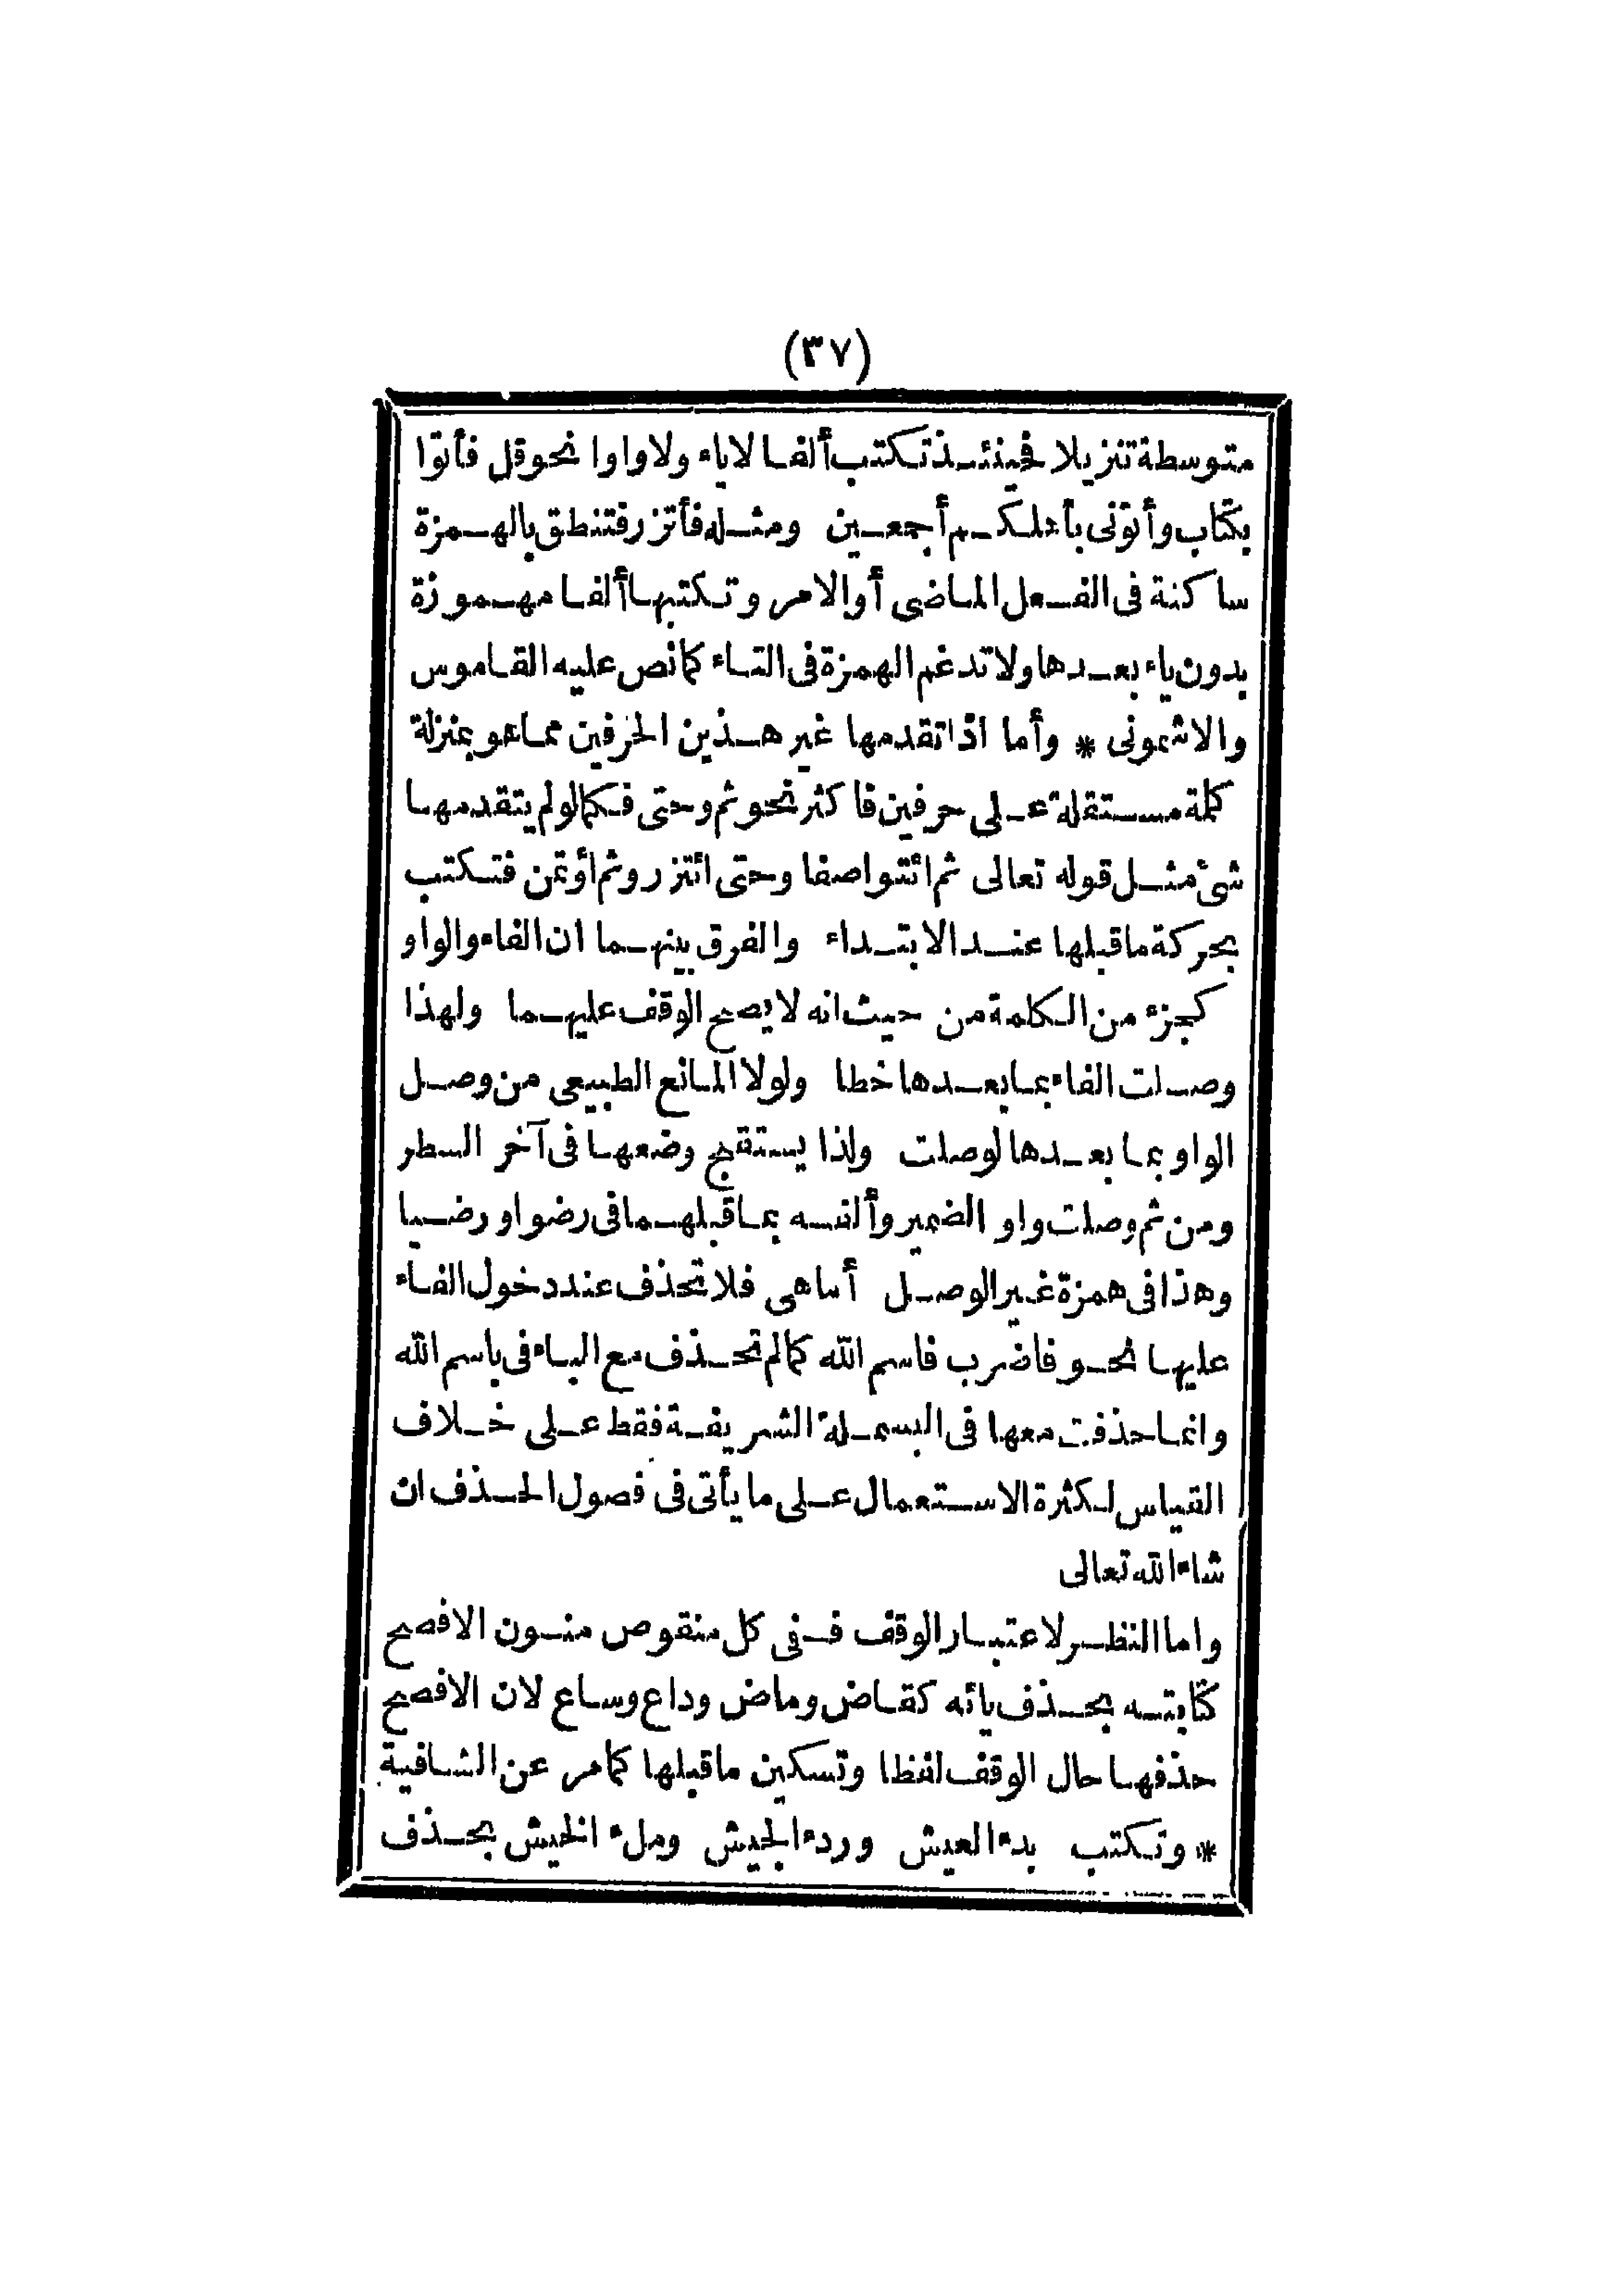 (٣٧)
متوسطة تنزيلا فحينئذ تكتب ألفا لا ياء ولا واوا نحو قل فأتوا
بكتاب وأتوني بأهلكم أجمعين ومثله فأتزر فتنطق بالهمزة
ساكنة في الفعل الماضي أو الامر وتكتبها ألفا مهموزة
بدون ياء بعدها ولا تدغم الهمزة في التاء كما نص عليه القاموس
والاشموني * وأما اذا تقدمها غير هذين الحرفين مما هو بمنزلة
كلمة مستقلة على حرفين فاكثر نحو ثم وحتى فكما لو لم يتقدمها
شئ مثل قوله تعالى ثم ائتوا صفا وحتى ائتزر وثم أؤتمن فتكتب
بحركة ما قبلها عند الابتداء والفرق بينهما ان الفاء والواو
كجزء من الكلمة من حيث انه لا يصح الوقف عليهما ولهذا
وصلت الفاء بما بعدها خطا ولولا المانع الطبيعي من وصل
الواو بما بعدها لوصلت ولذا يستقبح وضعها في آخر السطر
ومن ثم وصلت واو الضمير وألفه بما قبلهما في رضوا ورضيا
وهذا في همزة غير الوصل أما هي فلا تحذف عند دخول الفاء
عليها نحو فاضرب فاسم الله كما لم تحذف مع الباء في باسم الله
وانما حذفت معها في البسملة الشريفة فقط على خلاف
القياس لكثرة الاستعمال على ما يأتي في فصول الحذف ان
شاء الله تعالى
واما النظر لاعتبار الوقف ففي كل منقوص منون الافصح
كتابته بحذف يائه كقاض وماض وداع وساع لان الافصح
حذفها حال الوقف لفظا وتسكين ما قبلها كما مر عن الشافية
* وتكتب بدء العيش وردء الجيش وملء الخيش بحذف